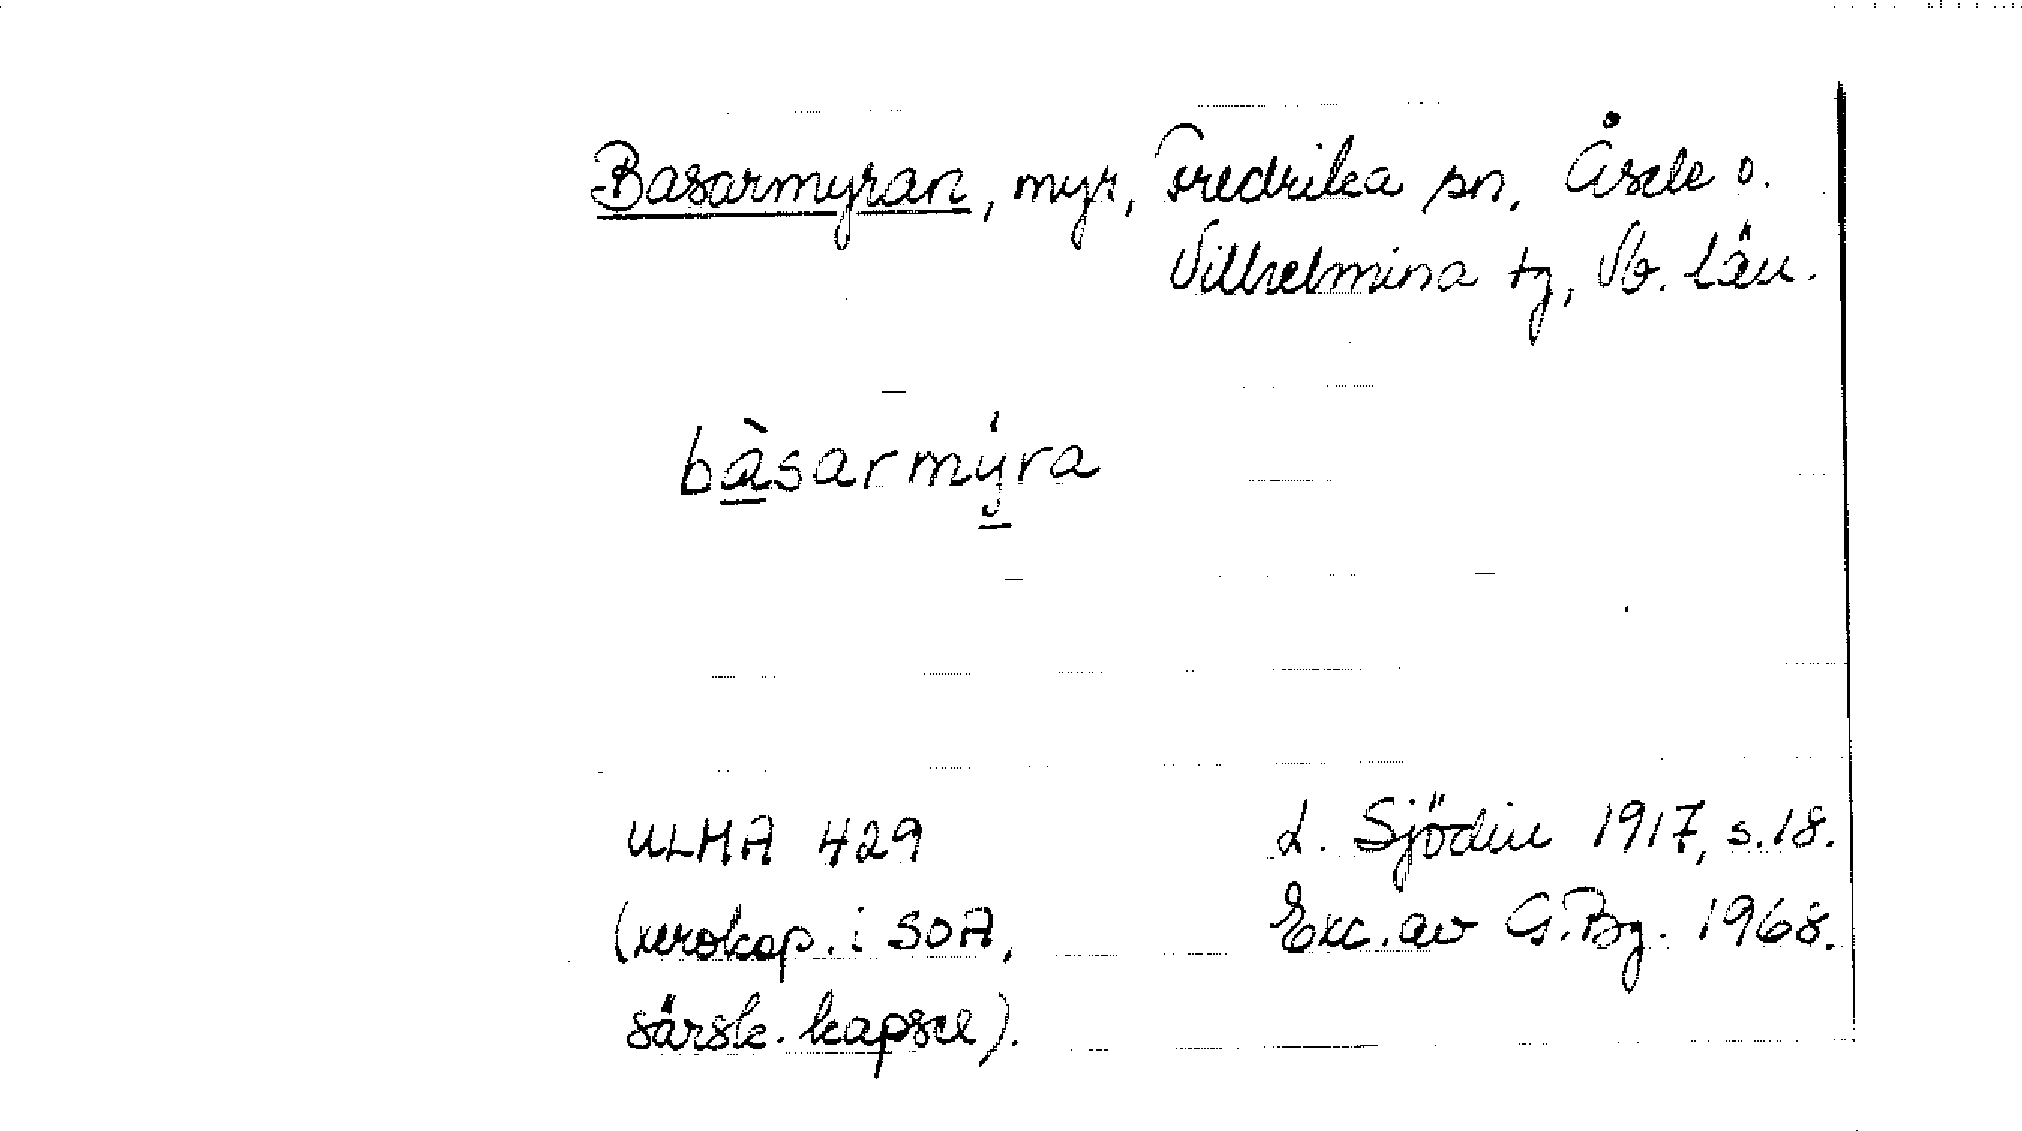 Basarmyran, myr, Fredrika sn, Åsele o.
Vilhelmina tg, Vb. län.
bàsarmýra
ULMA 429
(xerokop. i SOA,
särsk. kapsel).
L. Sjödin 1917, s.18.
Exc. av G.Bg. 1968.